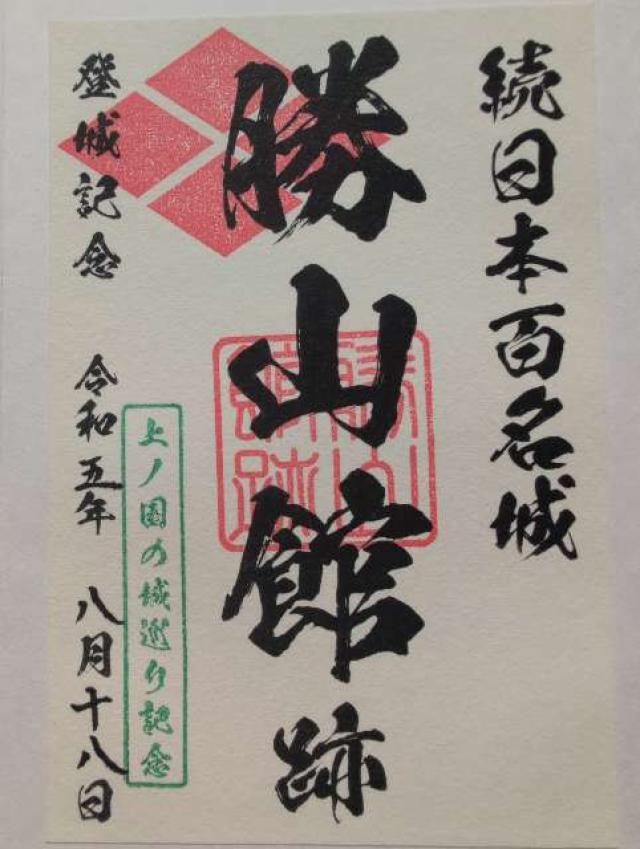 続日本百名城
勝山館跡
勝山
館跡
上ノ国の城巡り記念
登城記念 令和五年 八月十八日